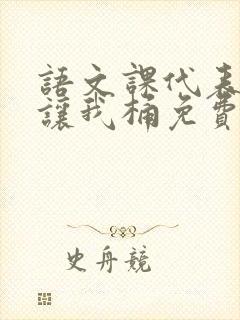 語文課代表
讓我桶免費
史舟競